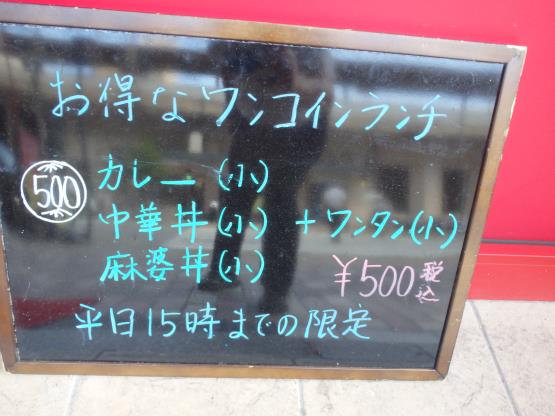 お得なワンコインランチ
500
カレー(小)
中華丼(小) +ワンタン(小)
麻婆丼(小)
¥500税込
平日15時までの限定